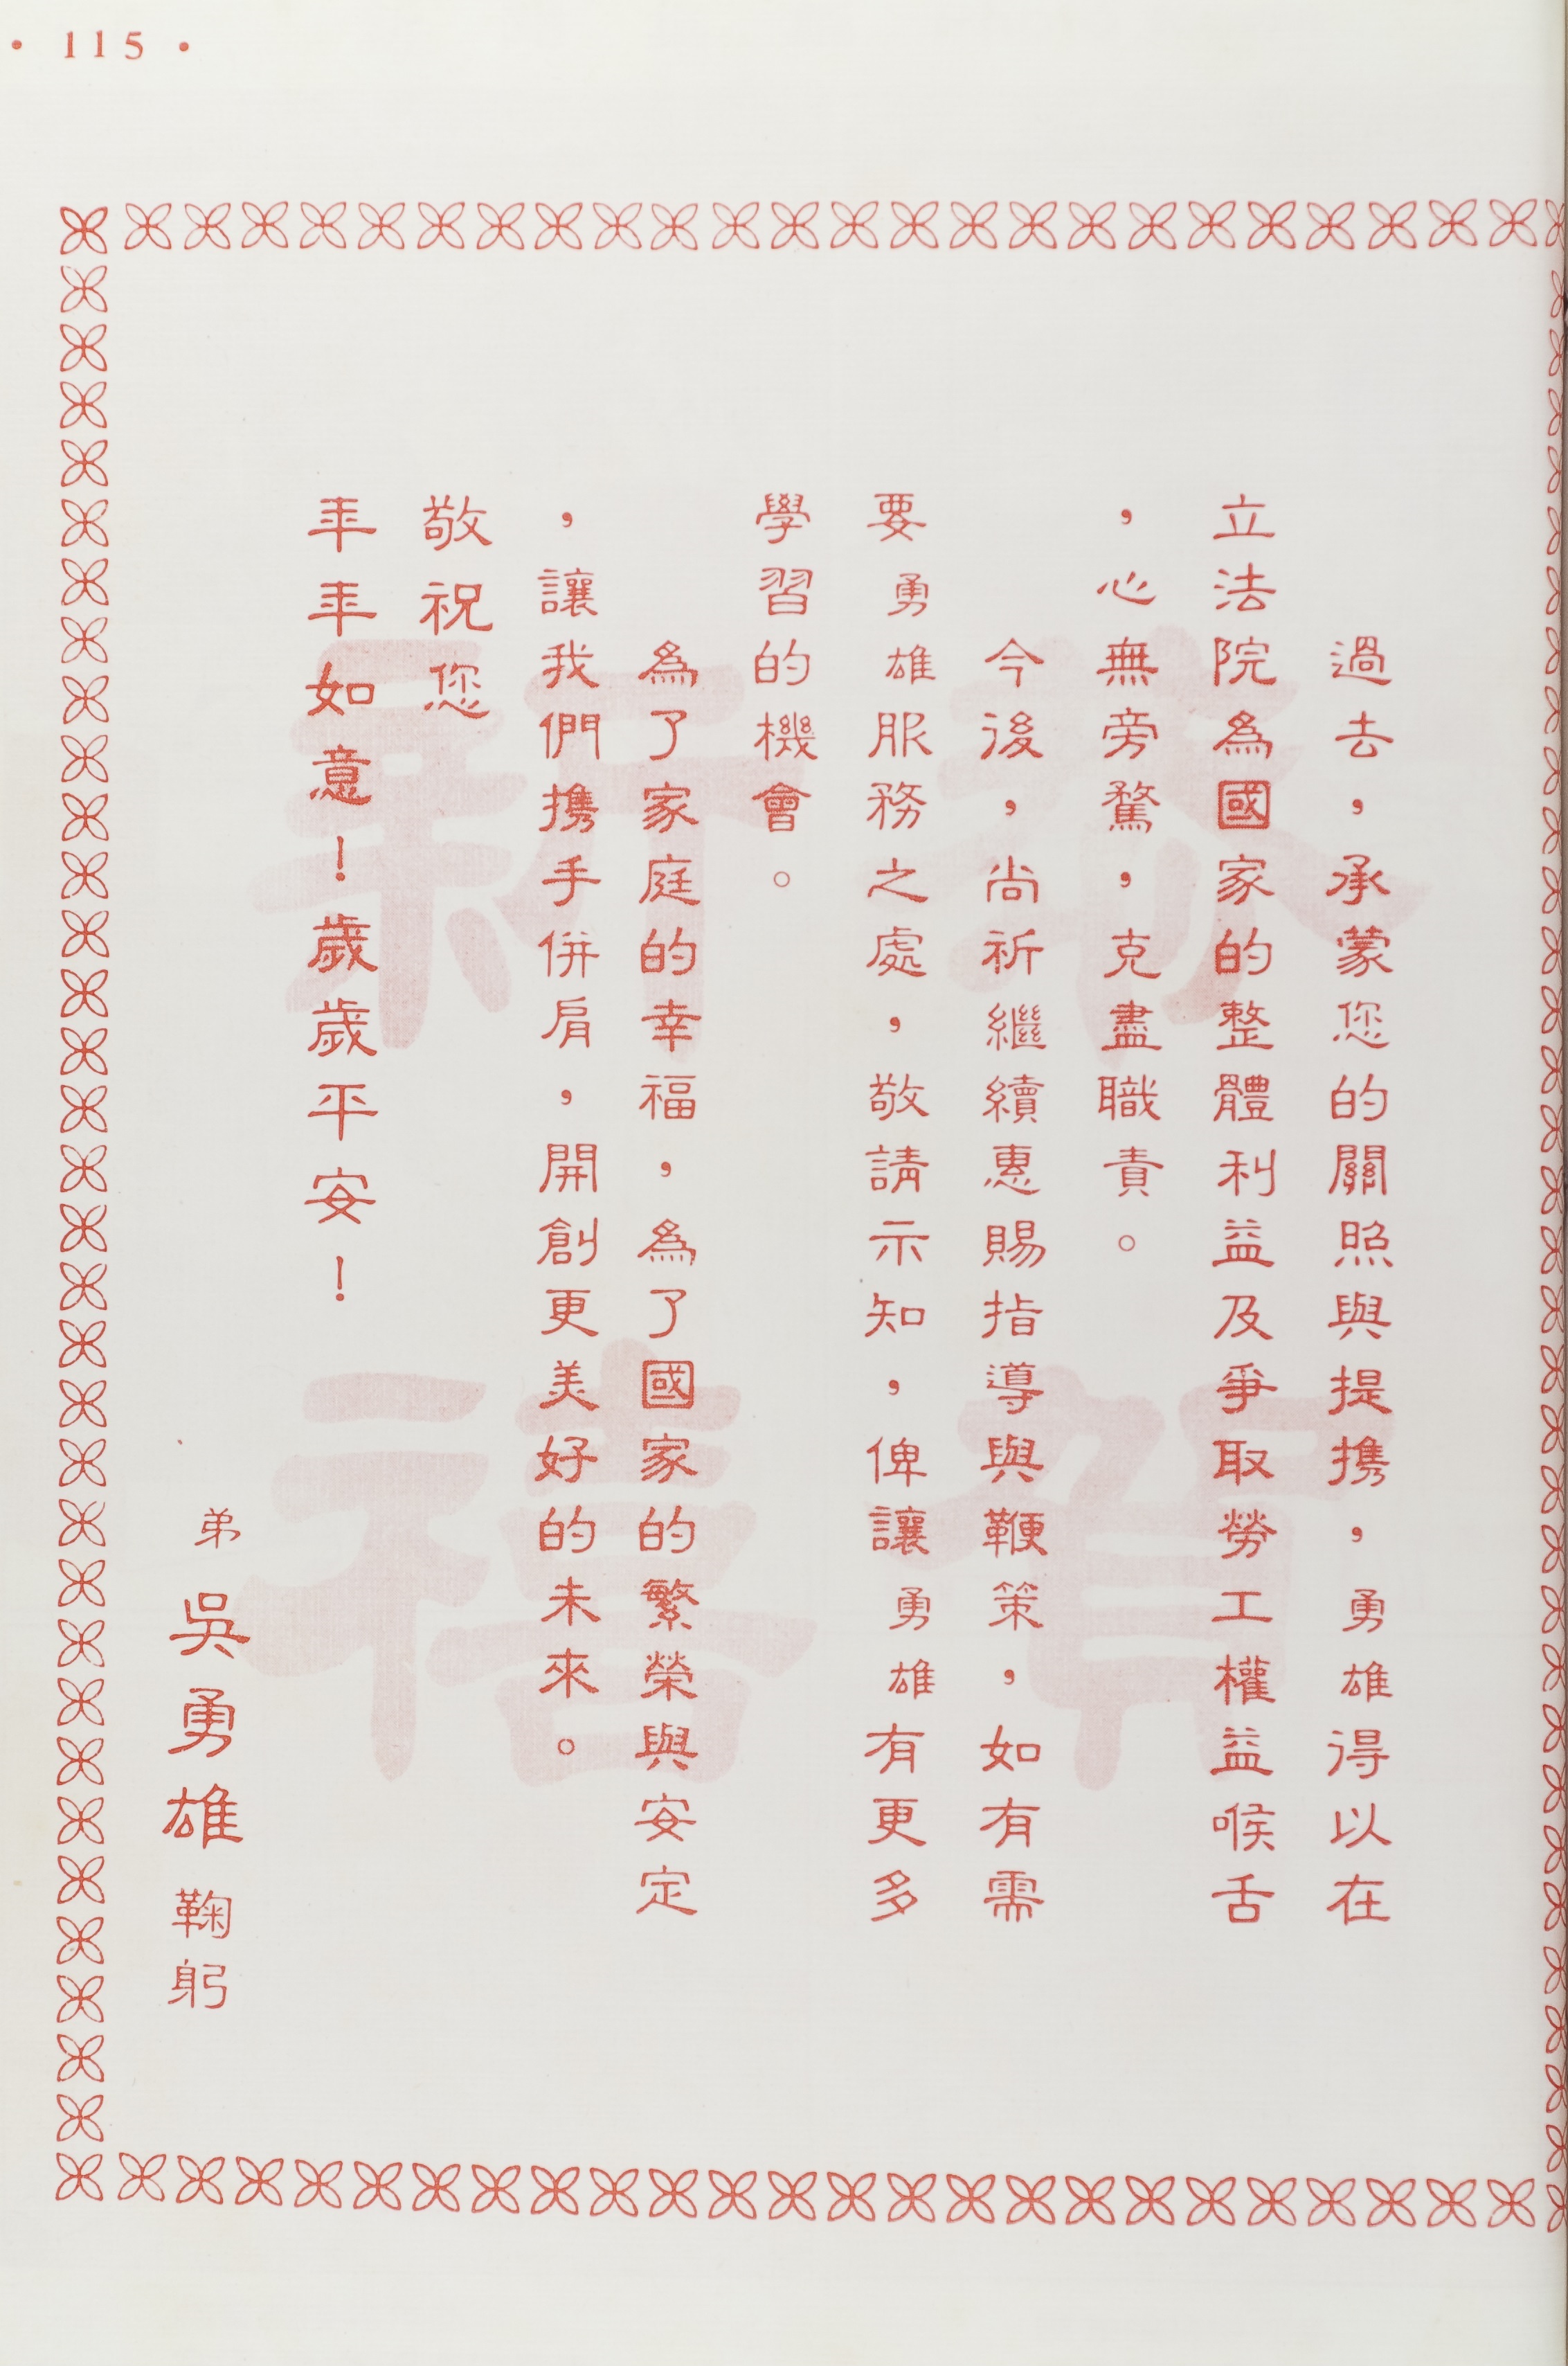 • 115 •
過去，承蒙您的關照與提携，勇雄得以在
立法院為國家的整體利益及爭取勞工權益喉舌
，心無旁騖，克盡職責。
今後，尚祈繼續惠賜指導與鞭策，如有需
要勇雄服務之處，敬請示知，俾讓勇雄有更多
學習的機會。
為了家庭的幸福，為了國家的繁榮與安定
，讓我們携手併肩，開創更美好的未來。
敬祝您
年年如意！歲歲平安！
弟吳勇雄鞠躬
恭賀
新禧